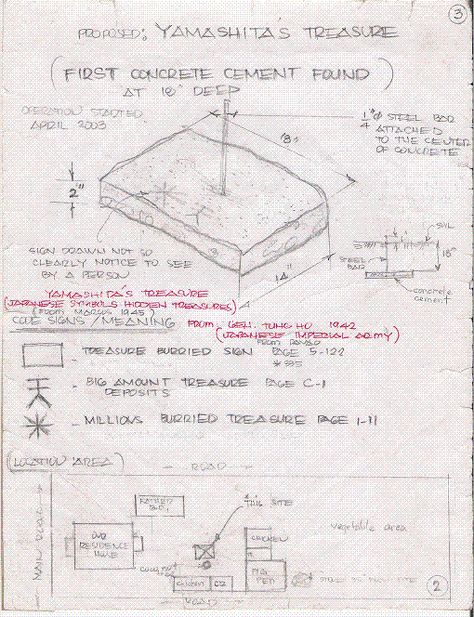 3
PROPOSED: YAMASHITA'S TREASURE
(FIRST CONCRETE CEMENT FOUND)
AT 18" DEEP
OPERATION STARTED
APRIL 2003
1/4" Ø STEEL BAR
ATTACHED
TO THE CENTER
OF CONCRETE
18"
2"
14"
SIGN DRAWN NOT SO
CLEARLY NOTICE TO SEE
BY A PERSON
18"
STEEL
BAR
concrete
cement
YAMASHITA'S TREASURE
(JAPANESE SYMBOLS HIDDEN TREASURES)
(FROM MARCOS 1945)
CODE SIGNS / MEANING FROM GEN. TUNG HO 1942
(JAPANESE IMPERIAL ARMY)
FROM
- TREASURE BURRIED SIGN PAGE 5-122
- BIG AMOUNT TREASURE PAGE C-1
DEPOSITS
- MILLIOUS BURRIED TREASURE PAGE 1-11
(LOCATION AREA)
- ROAD -
MAIN ROAD
OUR
RESIDENCE
HOUSE
THIS SITE
CHICKEN
PIG
PEN
vegetable area
chicken
ROAD
2